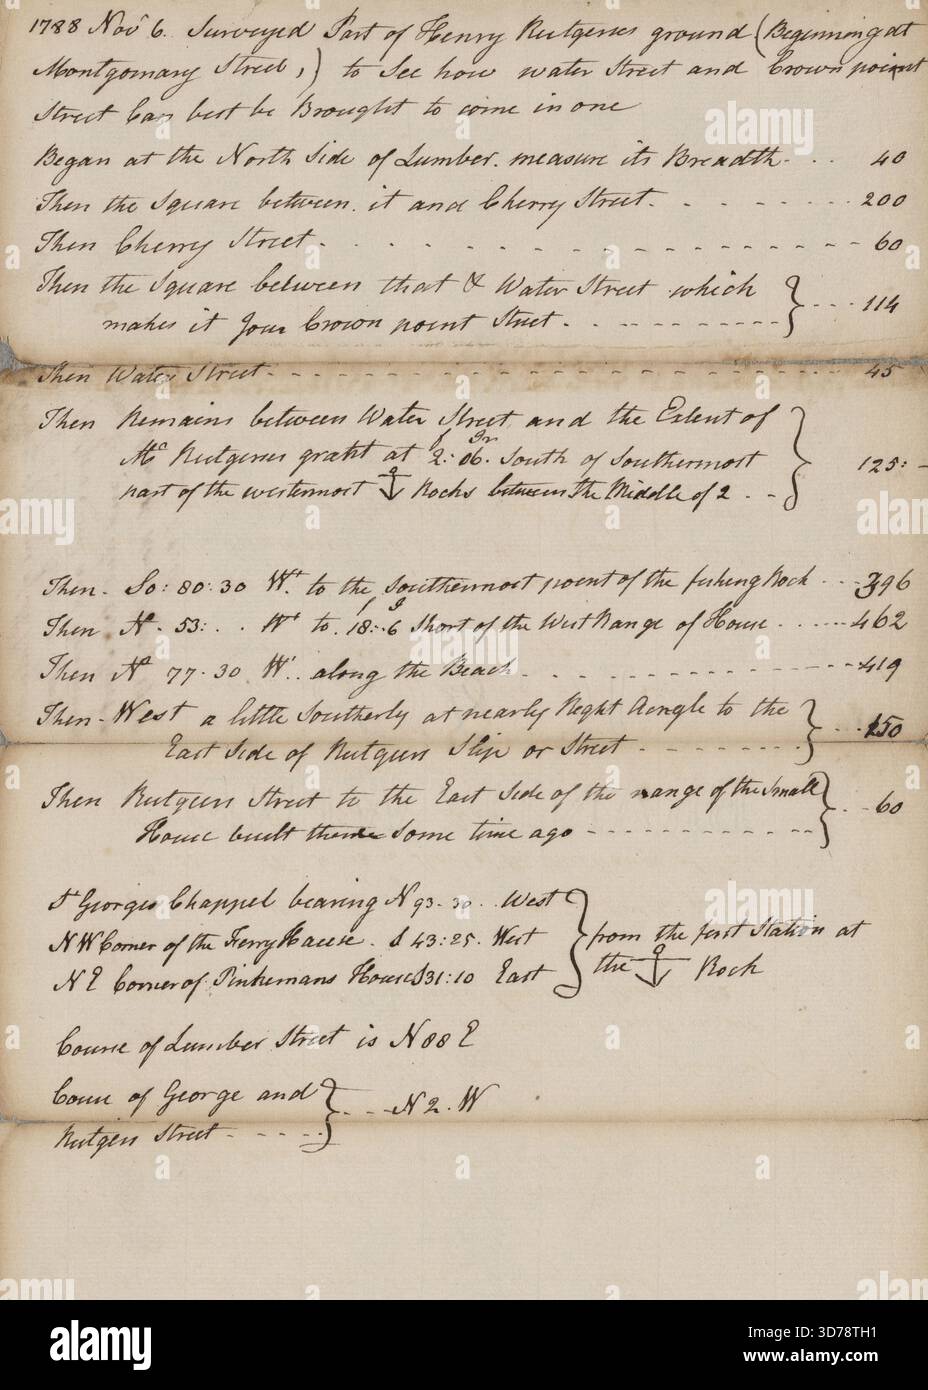 1788 Novr 6. Surveyed Part of Henry Rutgerss ground (Beginning at
Montgomary Street,) to See how water Street and Crown point
Street Can best be Brought to come in one
Began at the North Side of Lumber. measure its Breadth - . . 40
Then the Square between it and Cherry Street. - - - - - - - - 200
Then Cherry Street - - - - - - - - - - - - - 60
Then the Square between that & Water Street which
makes it Crown point Street . . - - - - - - - - 114
Then Water Street - - - - - - - - - - - - - 45
Then Remains between Water Street and the Extent of
Rutgerss grant at 2: 06. South of Southermost
part of the westermost ⚓ Rocks between the Middle of 2 . - 125: -
Then - So: 80: 30 Wt. to the Southermost point of the fishing Rock - - - 396
Then No - 53: . . Wt to 18: 6 Short of the West Range of House - - - - - 462
Then No 77 - 30 Wt. . along the Beach - - - - - - - - 419
Then - West a little Southerly at nearly Right Aengle to the
East Side of Rutgers Slip or Street - - - - - - - - 150
Then Rutgers Street to the East Side of the range of the Small
House built there Some time ago - - - - - - - - - - 60
St Georges Chappel bearing N 93 - 30 . . West
N W Corner of the Ferry House . S 43: 25. West
N E Corner of Pinkemans House S 31: 10 East
from the first Station at
the ⚓ Rock
Course of Lumber Street is N 88 E
Course of George and
Rutgers Street - - - - N 2. W
alamy
3D78TH1
Image ID: 3D78TH1
www.alamy.com